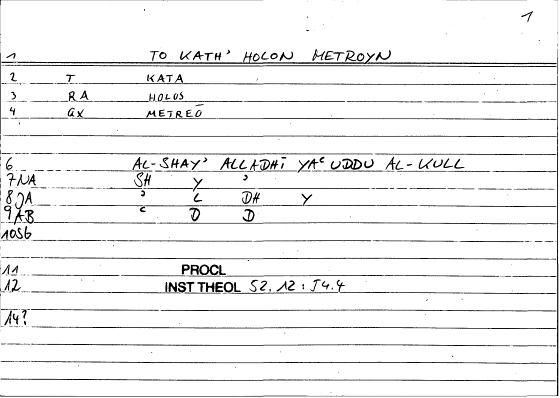 1
1 TO KATH' HOLON METROYN
2 T KATA
3 RA HOLOS
4 GX METREŌ
6 AL-SHAY' ALLADHĪ YAʿUDDU AL-KULL
7 NA SH Y '
8 JA ' L DH Y
9 AB ʿ D D
10 S6
11 PROCL
12 INST THEOL 52.12 : 54.4
14?